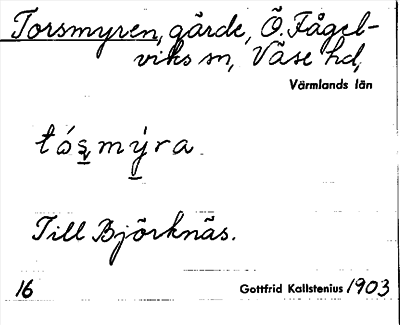 Torsmyren, gärde, Ö. Fågel-
viks sn, Väse hd,
Värmlands län
tósmýra
Till Björknäs.
16 Gottfrid Kallstenius 1903